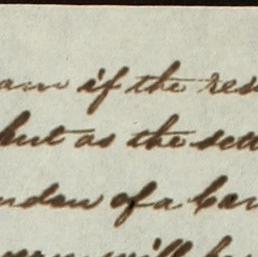 am if the res
but as the sett
nden of a bar
will